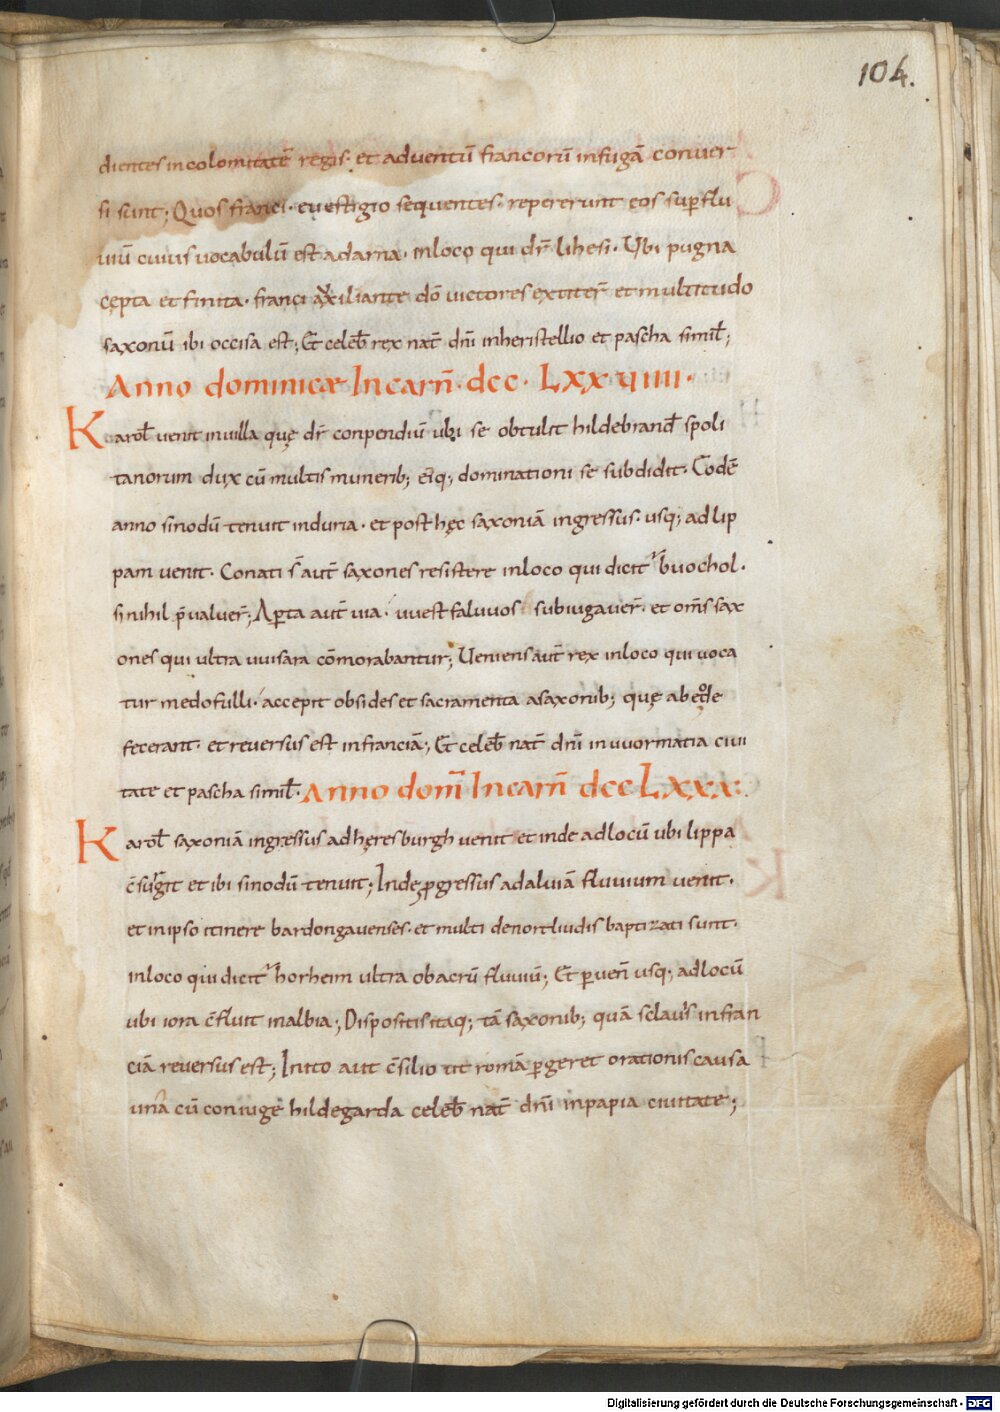 104.
dientes incolomitatē regis· et adventū francorū infugā conver
si sunt; Quos franci· evestigio sequentes· repererunt eos sup̄ flu
uiū cuius vocabulū est adarna· inloco qui dr̄ lihesi· Ubi pugna
cępta et finita· franci auxiliante dō victores extiter̄ et multitudo
saxonū ibi occisa est; Et celeb̄ rex nat̄ dn̄i inheristellio et pascha simil̄;
Anno dominicæ Incarn̄· dcc· Lxxviiii·
Karol̄ venit inuilla quę dr̄ conpendiū ubi se obtulit hildebrand̄ spoli
tanorum dux cū multis munerib; eiq; dominationi se subdidit· Eodē
anno sinodū tenuit induria· et post hęc saxoniā ingressus· usq; ad lip
pam venit· Conati s̄ aut̄ saxones resistere inloco qui dicit᷑ buochol·
si nihil p̄valuer̄; Ap̄ta aut̄ uia· uuestfaluuos subiugauer̄· et om̄s sax
ones qui ultra uuisara cōmorabantur; Ueniens aut̄ rex inloco qui uoca
tur medofulli· accepit obsides et sacramenta asaxonib; quę ab eode
fecerant· et reversus est infranciā; Et celeb̄ nat̄ dn̄i inuuormatia ciui
tate et pascha simil̄· Anno dom̄i Incarn̄ dcc Lxxx:
Karol̄ saxoniā ingressus adhęresburgh venit et inde adlocū ubi lippa
c̄surgit et ibi sinodū tenuit; Inde p̱gressus adalviā fluuium venit·
et inipso itinere bardongauenses· et multi denortliudis baptizati sunt·
inloco qui dicit᷑ horheim ultra obacrū fluuiū; Et p̱ven̄ usq; adlocū
ubi iora c̄fluit inalbia; Dispositis itaq; tā saxonib; quā sclauis infran
ciā reversus est; Inito aut̄ c̄silio ut romā p̱geret orationis causa
unā cū coniuge hildegarda celeb̄ nat̄ dn̄i inpapia ciuitate;
Digitalisierung gefördert durch die Deutsche Forschungsgemeinschaft - DFG